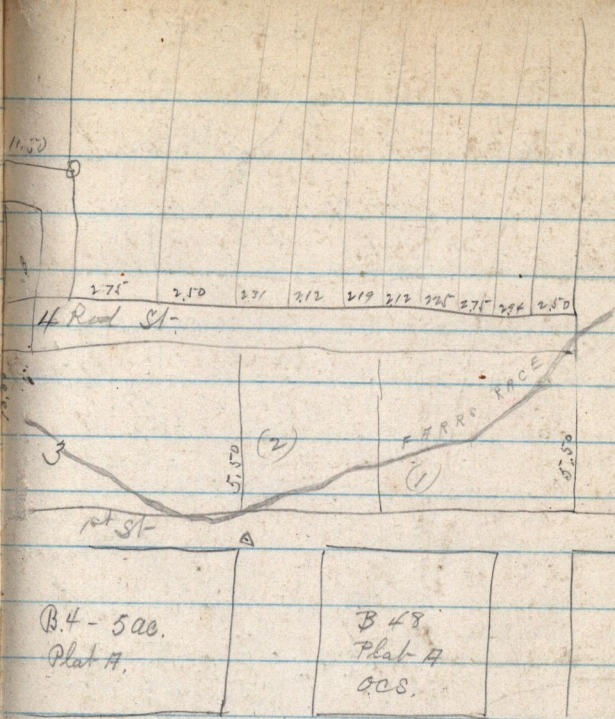 11.50
2.75 2.50 2.31 2.12 2.19 2.12 2.25 2.75 2.94 2.50
4 Rod St.
FARRS RACE
3
5.50
(2)
(1)
5.50
1st St
B.4 - 5 ac.
Plat A.
B 48
Plat A
O.C.S.